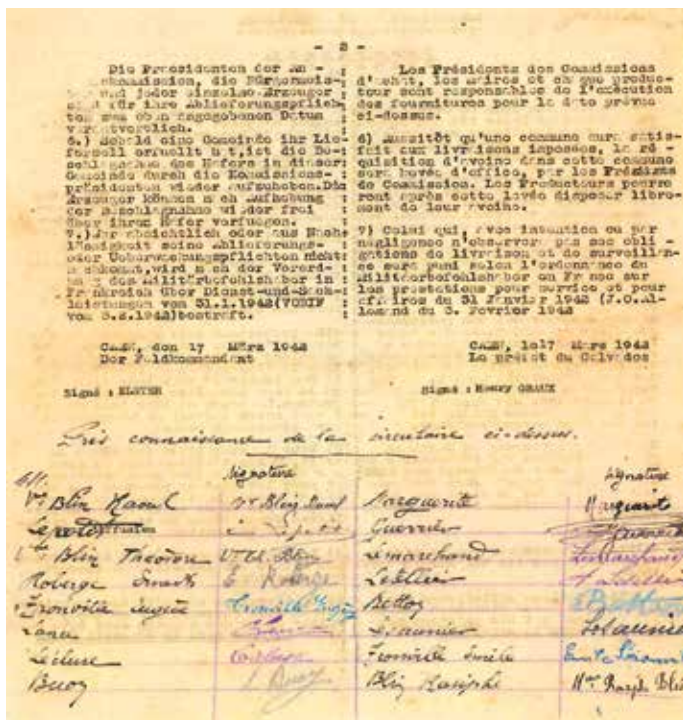 - 2 -
Die Praesidenten der An -
kommission, die Bürgermeis-
und jeder einzelne Erzeuger
sind für ihre Ablieferungspflich-
ten zum oben angegebenen Datum
verantwortlich.
6.) Sobald eine Gemeinde ihr Lie-
fersoll erfuellt hat, ist die Be-
schlagnahme des Hafers in dieser
Gemeinde durch die Kommissions-
präsidenten wieder aufzuheben. Die
Erzeuger können nach Aufhebung
der Beschlagnahme wieder frei
über ihren Hafer verfuegen.
7.) Wer absichtlich oder aus Nach
lässigkeit seine Ablieferungs-
oder Ueberwachungspflichten nicht
nachkommt, wird nach der Verord-
nung des Militärbefehlshaber in
Frankreich über Dienst-und-Sach-
leistungen vom 31.1.1942 (VOBIF
vom 3.2.1942) bestraft.
CAEN, den 17 März 1942
Der Feldkommandant
Signé : ELSTER
Les Présidents des Commissions
d'achat, les maires et chaque produc-
teur sont responsables de l'exécution
des fournitures pour la date prévue
ci-dessus.
6) Aussitôt qu'une commune aura satis-
fait aux livraisons imposées, la ré -
quisition d'avoine dans cette commune
sera levée d'office, par les Présidents
de Commission. Les Producteurs pourro
ront après cette levée disposer libre-
ment de leur avoine.
7) Celui qui, avec intention ou par
négligence n'observera pas ses obli -
gations de livraison et de surveillan-
ce sera puni selon l'ordonnance du
Militärbefehlshaber en France sur
les prestations pour service et pour
affaires du 31 Janvier 1942 (J.O.Al-
lemand du 3. Fevrier 1942
CAEN, le 17 Mars 1942
Le préfet du Calvados
Signé : Henry GRAUX
Pris connaissance de la circulaire ci-dessus.
Signature Signature
Vve Blin Raoul Marguerite
Guerrier
Vve Blin Théodore Lemarchand
Roberge Ernest E Roberge Letellier
Fronville Eugène Fronville Eugène
Lesaunier
Leclerc Fronville Emile
Buoy Buoy